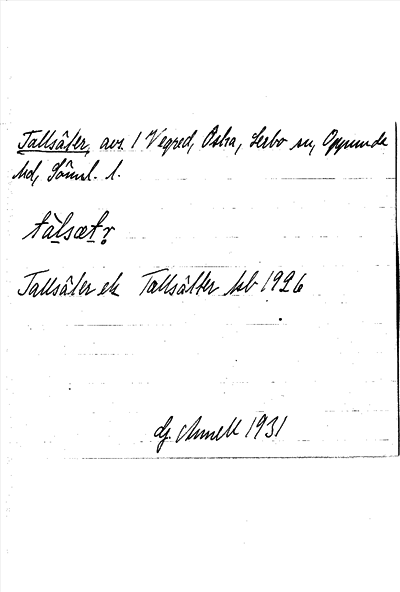 Tallsäter, avs. 1 Vegred, Östra, Lerbo sn, Oppunda
hd, Söml. l.
tàlsætr
Tallsäter ek Tallsätter kb 1926
G. Annell 1931